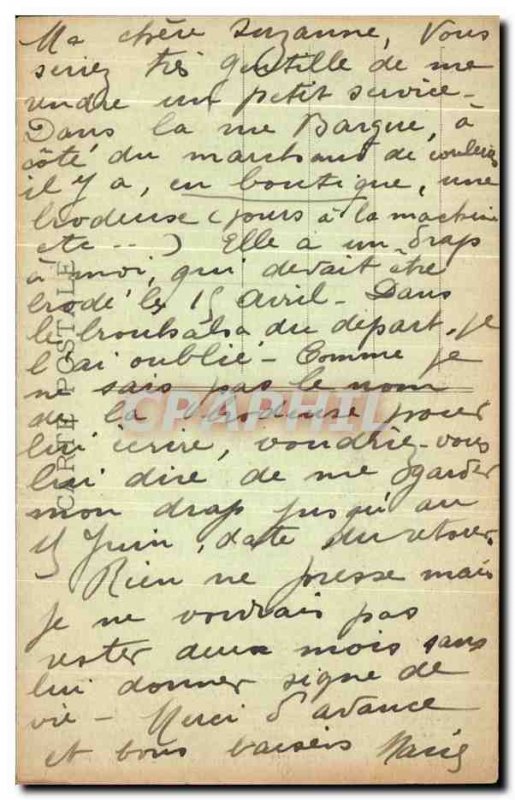 Ma chère Suzanne, Vous
seriez très gentille de me
rendre un petit service -
Dans la rue Bargue, à
côté du marchand de couleurs
il y a, en boutique, une
brodeuse (jours à la machine
etc ...) Elle a un drap
à moi, qui devait être
brodé le 15 Avril - Dans
le du départ, je
l'ai oublié - Comme je
ne sais pas le nom
de la brodeuse pour
lui écrire, voudriez-vous
lui dire de me garder
mon drap jusqu'au
15 Juin, date du retour.
Rien ne presse mais
je ne voudrais pas
rester deux mois sans
lui donner signe de
vie - Merci d'avance
et bons baisers Marie
CARTE POSTALE
CPAPHIL